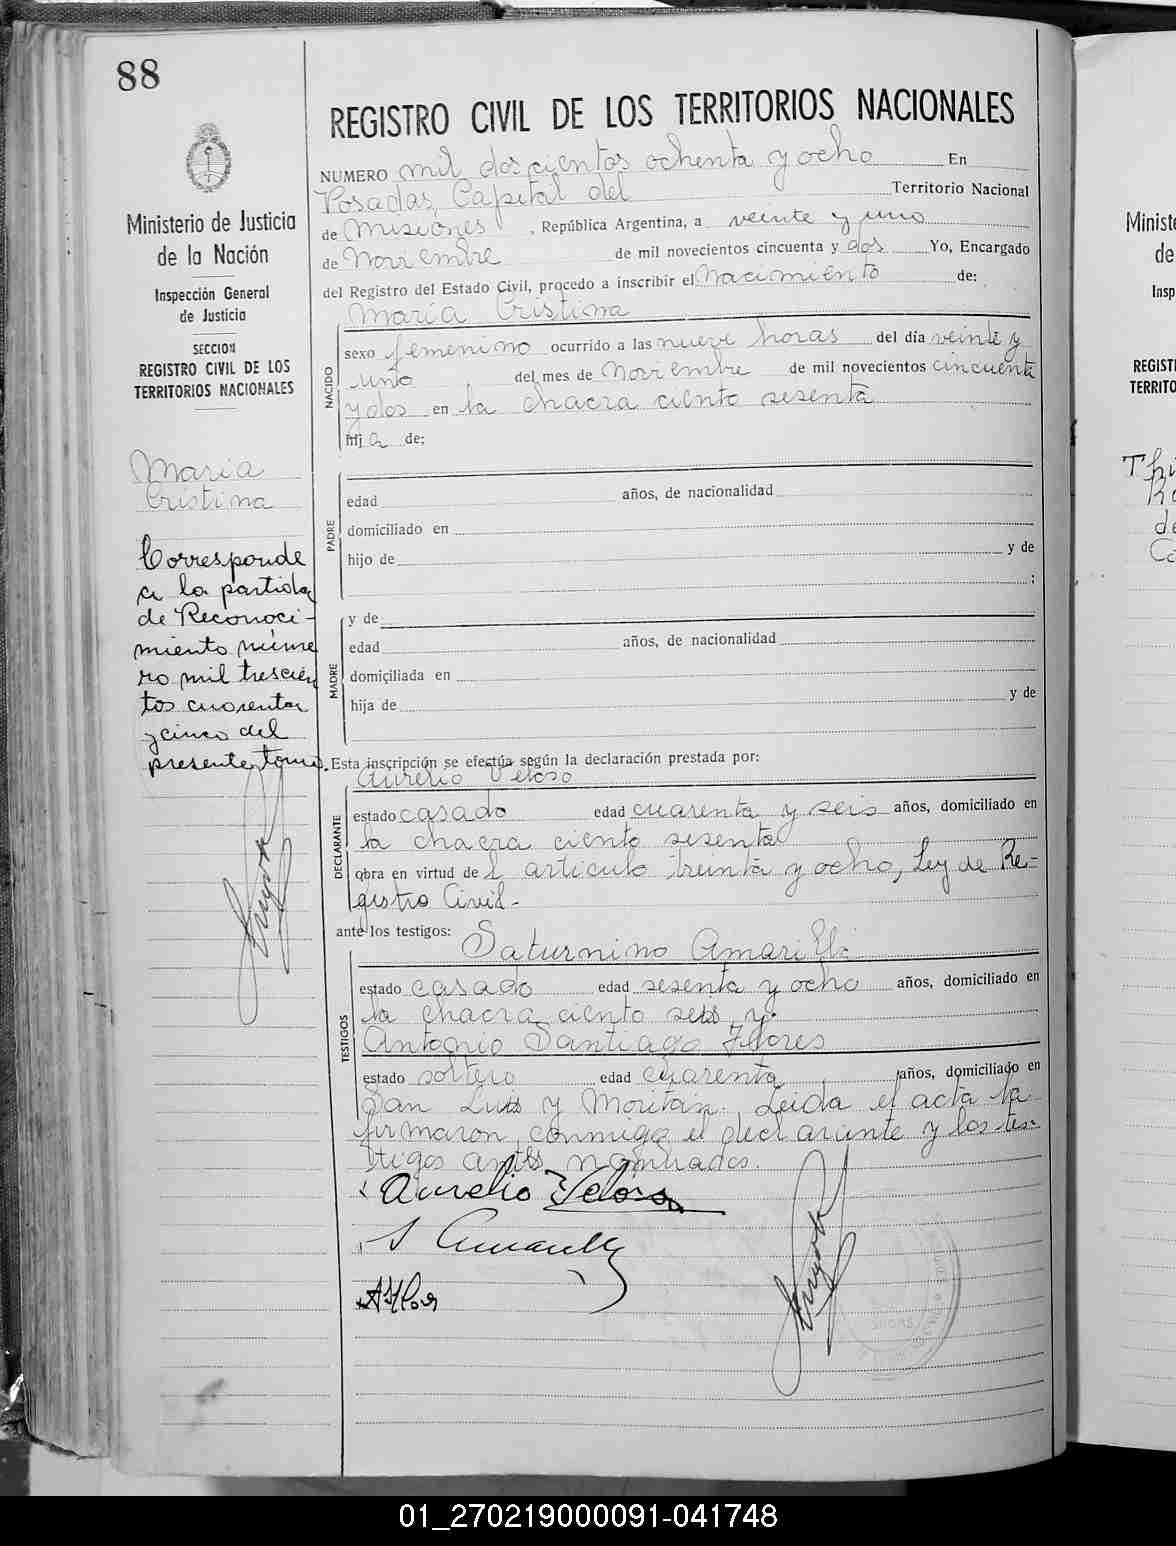 88
REGISTRO CIVIL DE LOS TERRITORIOS NACIONALES
Ministerio de Justicia
de la Nación
Inspección General
de Justicia
SECCION
REGISTRO CIVIL DE LOS
TERRITORIOS NACIONALES
Maria
Cristina
Corresponde
a la partida
de Reconoci-
miento núme
ro mil trescien
tos cuarenta
y cinco del
presente tomo.
NUMERO mil doscientos ochenta y ocho En
Posadas, Capital del Territorio Nacional
de Misiones, República Argentina, a veinte y uno
de Noviembre de mil novecientos cincuenta y dos Yo, Encargado
del Registro del Estado Civil, procedo a inscribir el Nacimiento de:
Maria Cristina
NACIDO
sexo femenino ocurrido a las nueve horas del día veinte y
uno del mes de Noviembre de mil novecientos cincuenta
y dos en la chacra ciento sesenta
hija de:
PADRE
edad años, de nacionalidad
domiciliado en
hijo de y de
;
MADRE
y de
edad años, de nacionalidad
domiciliada en
hija de y de
Esta inscripción se efectúa según la declaración prestada por:
Aurelio Veloso
DECLARANTE
estado casado edad cuarenta y seis años, domiciliado en
la chacra ciento sesenta
obra en virtud del articulo treinta y ocho, Ley de Re-
gistro Civil-
ante los testigos:
Saturnino Amarilla
TESTIGOS
estado casado edad sesenta y ocho años, domiciliado en
la chacra ciento seis y
Antonio Santiago Flores
estado soltero edad cuarenta años, domiciliado en
San Luis y Moritán. Leida el acta la
firmaron conmigo el declarante y los tes-
tigos antes nombrados.
Aurelio Veloso
S Amarilla
A S Flores
01_270219000091-041748
Ministe
de
Insp
REGISTI
TERRITO